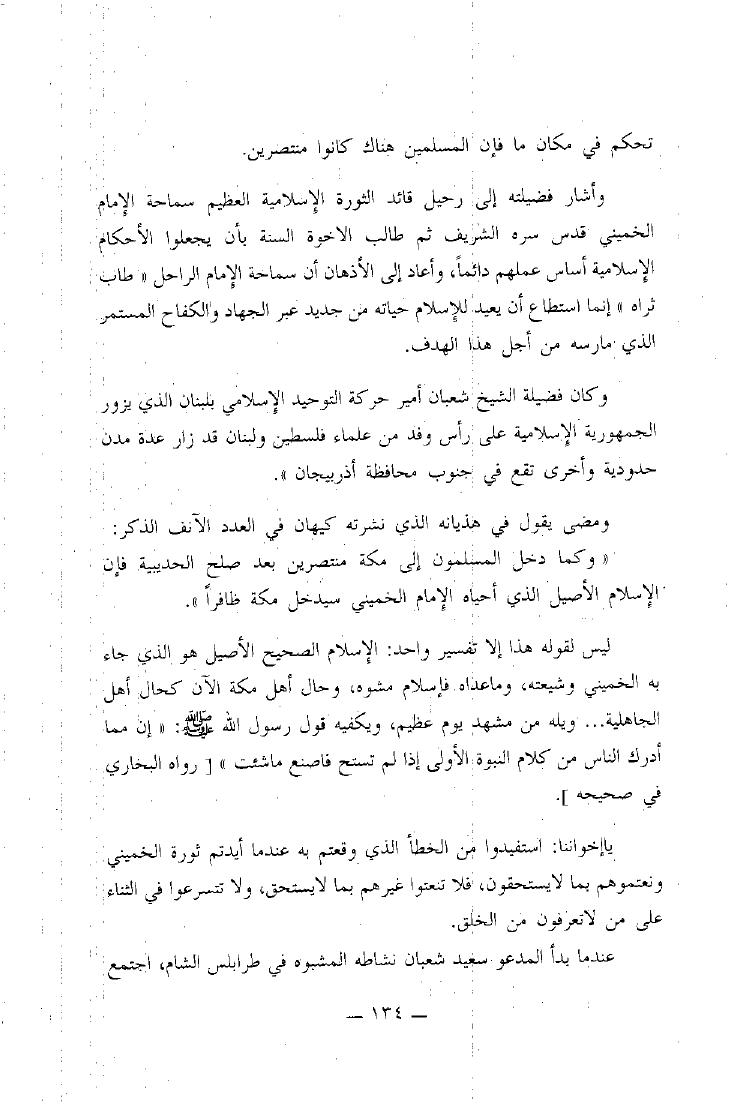 تحكم في مكان ما فإن المسلمين هناك كانوا منتصرين.
وأشار فضيلته إلى رحيل قائد الثورة الإسلامية العظيم سماحة الإمام
الخميني قدس سره الشريف ثم طالب الاخوة السنة بأن يجعلوا الأحكام
الإسلامية أساس عملهم دائماً، وأعاد إلى الأذهان أن سماحة الإمام الراحل « طاب
ثراه » إنما استطاع أن يعيد للإسلام حياته من جديد عبر الجهاد والكفاح المستمر
الذي مارسه من أجل هذا الهدف.
وكان فضيلة الشيخ شعبان أمير حركة التوحيد الإسلامي بلبنان الذي يزور
الجمهورية الإسلامية على رأس وفد من علماء فلسطين ولبنان قد زار عدة مدن
حدودية وأخرى تقع في جنوب محافظة أذربيجان ».
ومضى يقول في هذيانه الذي نشرته كيهان في العدد الآنف الذكر:
« وكما دخل المسلمون إلى مكة منتصرين بعد صلح الحديبية فإن
الإسلام الأصيل الذي أحياه الإمام الخميني سيدخل مكة ظافراً ».
ليس لقوله هذا إلا تفسير واحد: الإسلام الصحيح الأصيل هو الذي جاء
به الخميني وشيعته، وماعداه فإسلام مشوه، وحال أهل مكة الآن كحال أهل
الجاهلية... ويله من مشهد يوم عظيم، ويكفيه قول رسول الله ﷺ: « إن مما
أدرك الناس من كلام النبوة الأولى إذا لم تستح فاصنع ماشئت » [ رواه البخاري
في صحيحه ].
ياإخواننا: استفيدوا من الخطأ الذي وقعتم به عندما أيدتم ثورة الخميني
ونعتموهم بما لايستحقون، فلا تنعتوا غيرهم بما لايستحق، ولا تتسرعوا في الثناء
على من لاتعرفون من الخلق.
عندما بدأ المدعو سعيد شعبان نشاطه المشبوه في طرابلس الشام، اجتمع
— ١٣٤ —